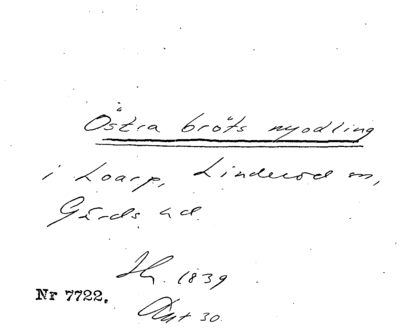 Östra bröts nyodling
i Loarp, Linderöd sn,
Gärds hd.
Ju. 1839
Nr 7722.
Akt 30.